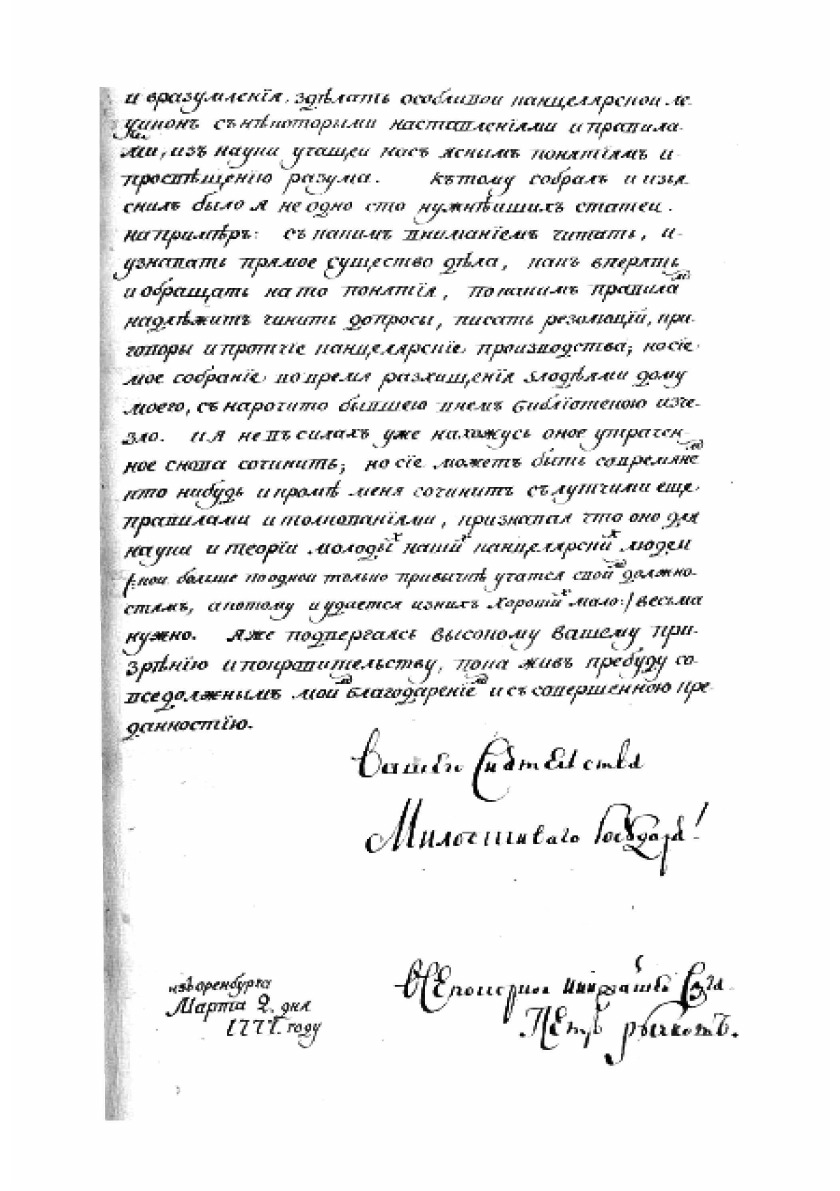 и вразумленїя, здѣлать особливои канцелярскои ле-
ѯиконъ съ нѣкоторыми наставленїями и правила-
ми, изъ науки учащеи насъ яснымъ понятїямъ и
просвѣщенїю разума. Къ тому собралъ и изья-
снилъ было я не одно сто нужнѣишихъ статеи.
на примѣръ: съ какимъ вниманїемъ читать, и
узнавать прямое существо дѣла, какъ вперять
и обращать на то понятїя, по какимъ правила
надлѣжитъ чинить допросы, писать резолюцїй, при-
говоры и протчїе канцелярскїе производства; но сїе
мое собранїе во время разхищенїя злодѣями дому
моего, съ нарочито бывшею внемъ библїотекою изче-
зло. и я не въ силахъ уже нахожусь оное утрачен-
ное снова сочинить; но сїе можетъ быть современѣ
кто нибудь и кромѣ меня сочинит съ лутчими еще
правилами и толкованїями, признавая что оно для
науки и теорїи молоды х наши х канцелярски х людеи
/:кои больше по одной только привычкѣ учатся свои должно-
стямъ, а потому и удается изних хороши х мало:/ весьма
нужно. Я же подвергаясь высокому вашему при-
зрѣнїю и покровительству, пока живъ пребуду со
вседолжнымъ мои благодаренїе и съ совершенною пре-
данностїю.
Вашего Сиятельства
Милостиваго Государя!
изъ Оренбурга
Марта 2. дня
1777. году
всепокорнои слуга
Петръ Рычковъ.